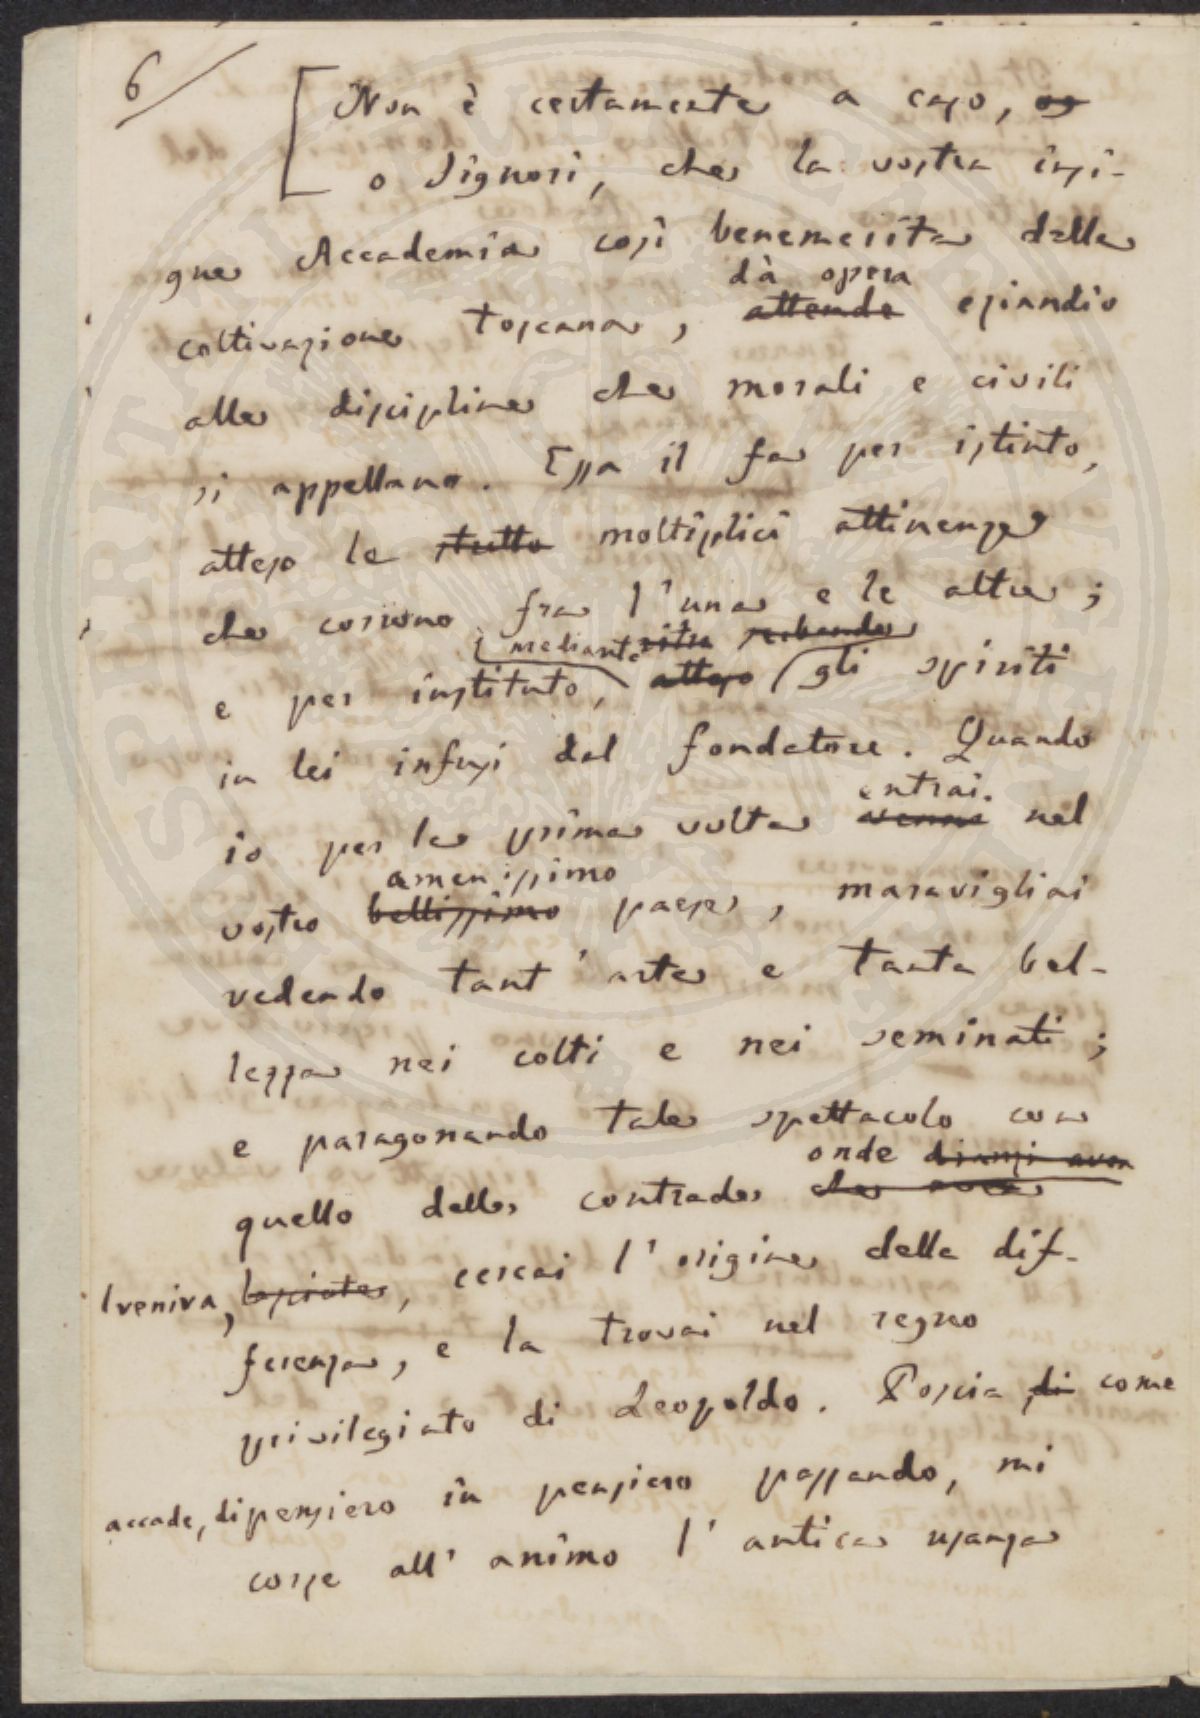 6
Non è certamente a caso, og
o Signori, che la vostra insi-
gne Accademia così benemerita della
dà opera
coltivazione toscana, attende eziandio
alle discipline che morali e civili
si appellano. Essa il fa per istinto,
atteso le stutto moltiplici attinenze
che corrono fra l'una e le altre;
mediante
e per instituto, atteso gli spiriti
in lei infusi dal fondatore. Quando
entrai
io per la prima volta venni nel
amenissimo
vostro bellissimo paese, maravigliai
vedendo tant'arte e tanta bel-
lezza nei colti e nei seminati;
e paragonando tale spettacolo con
onde dianzi avea
quello delle contrade che avea
veniva, lasciate, cercai l'origine della dif-
ferenza, e la trovai nel regno
privilegiato di Leopoldo. Poscia di come
accade, di pensiero in pensiero passando, mi
corse all'animo l'antica usanza